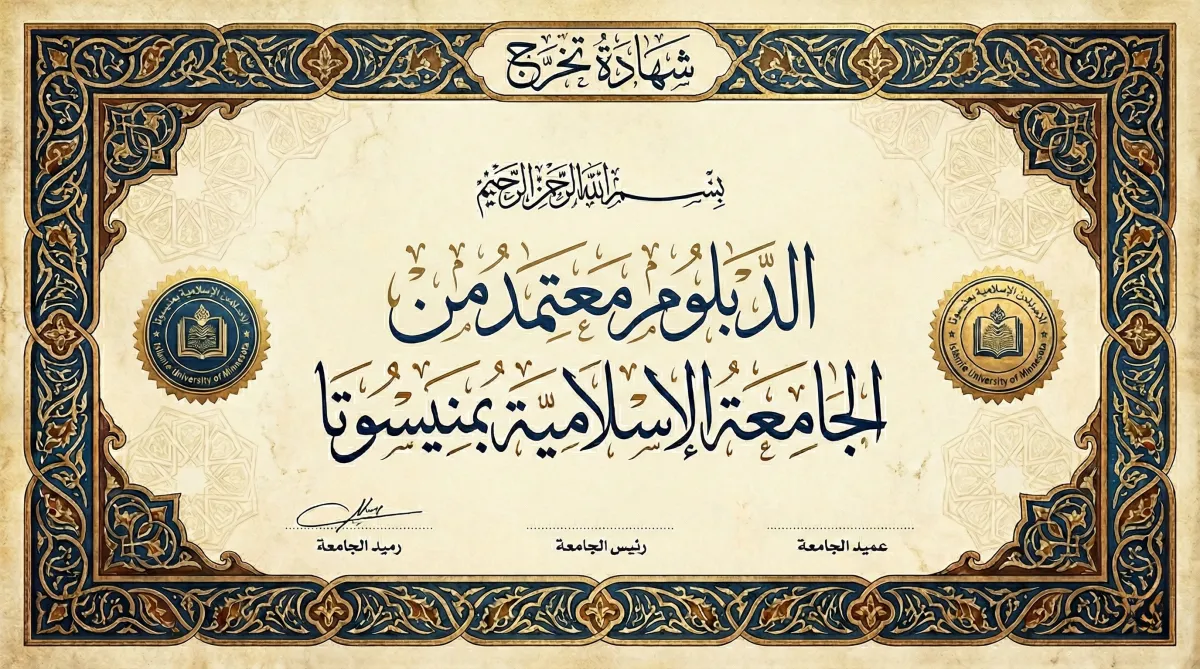 شهادةُ تخرَّج
بِسْمِ اللهِ الرَّحْمنِ الرَّحِيْمِ
الدَّبلُومُ مَعتِمَدُ مِنْ
الجَامِعَةُ الإسْلَامِيَّة بمنِيَسُوتَا
Islamic University of Minnesota
الإسلامية بمنيسوتا
Islamic University of Minnesota
عميد الجامعة
رئيس الجامعة
رميد الجامعة